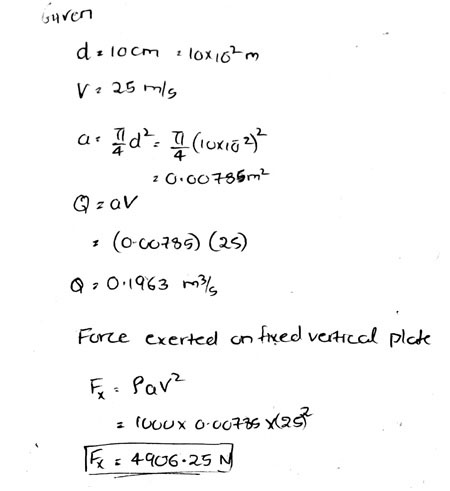 Given
d = 10cm = 10x10⁻²m
V = 25 m/s
a = π/4 d² = π/4 (10x10⁻²)²
= 0.00785m²
Q = aV
= (0.00785) (25)
Q = 0.1963 m³/s
Force exerted on fixed vertical plate
Fₓ = ρav²
= 1000 x 0.00785 x (25)²
Fₓ = 4906.25 N